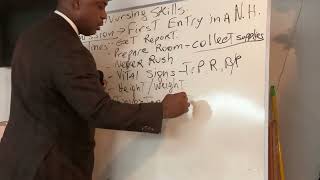 Nursing Skills.
ssion → First Entry in a N.H.
times: Get Report.
Prepare Room - collect supplies
Never Rush
- Vital Signs - T: P R, B/P
- Height / Weight